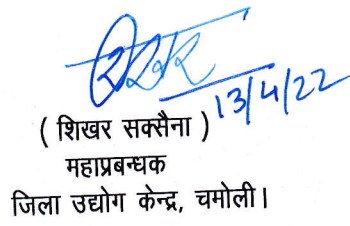 शिखर
13/4/22
( शिखर सक्सैना )
महाप्रबन्धक
जिला उद्योग केन्द्र, चमोली।